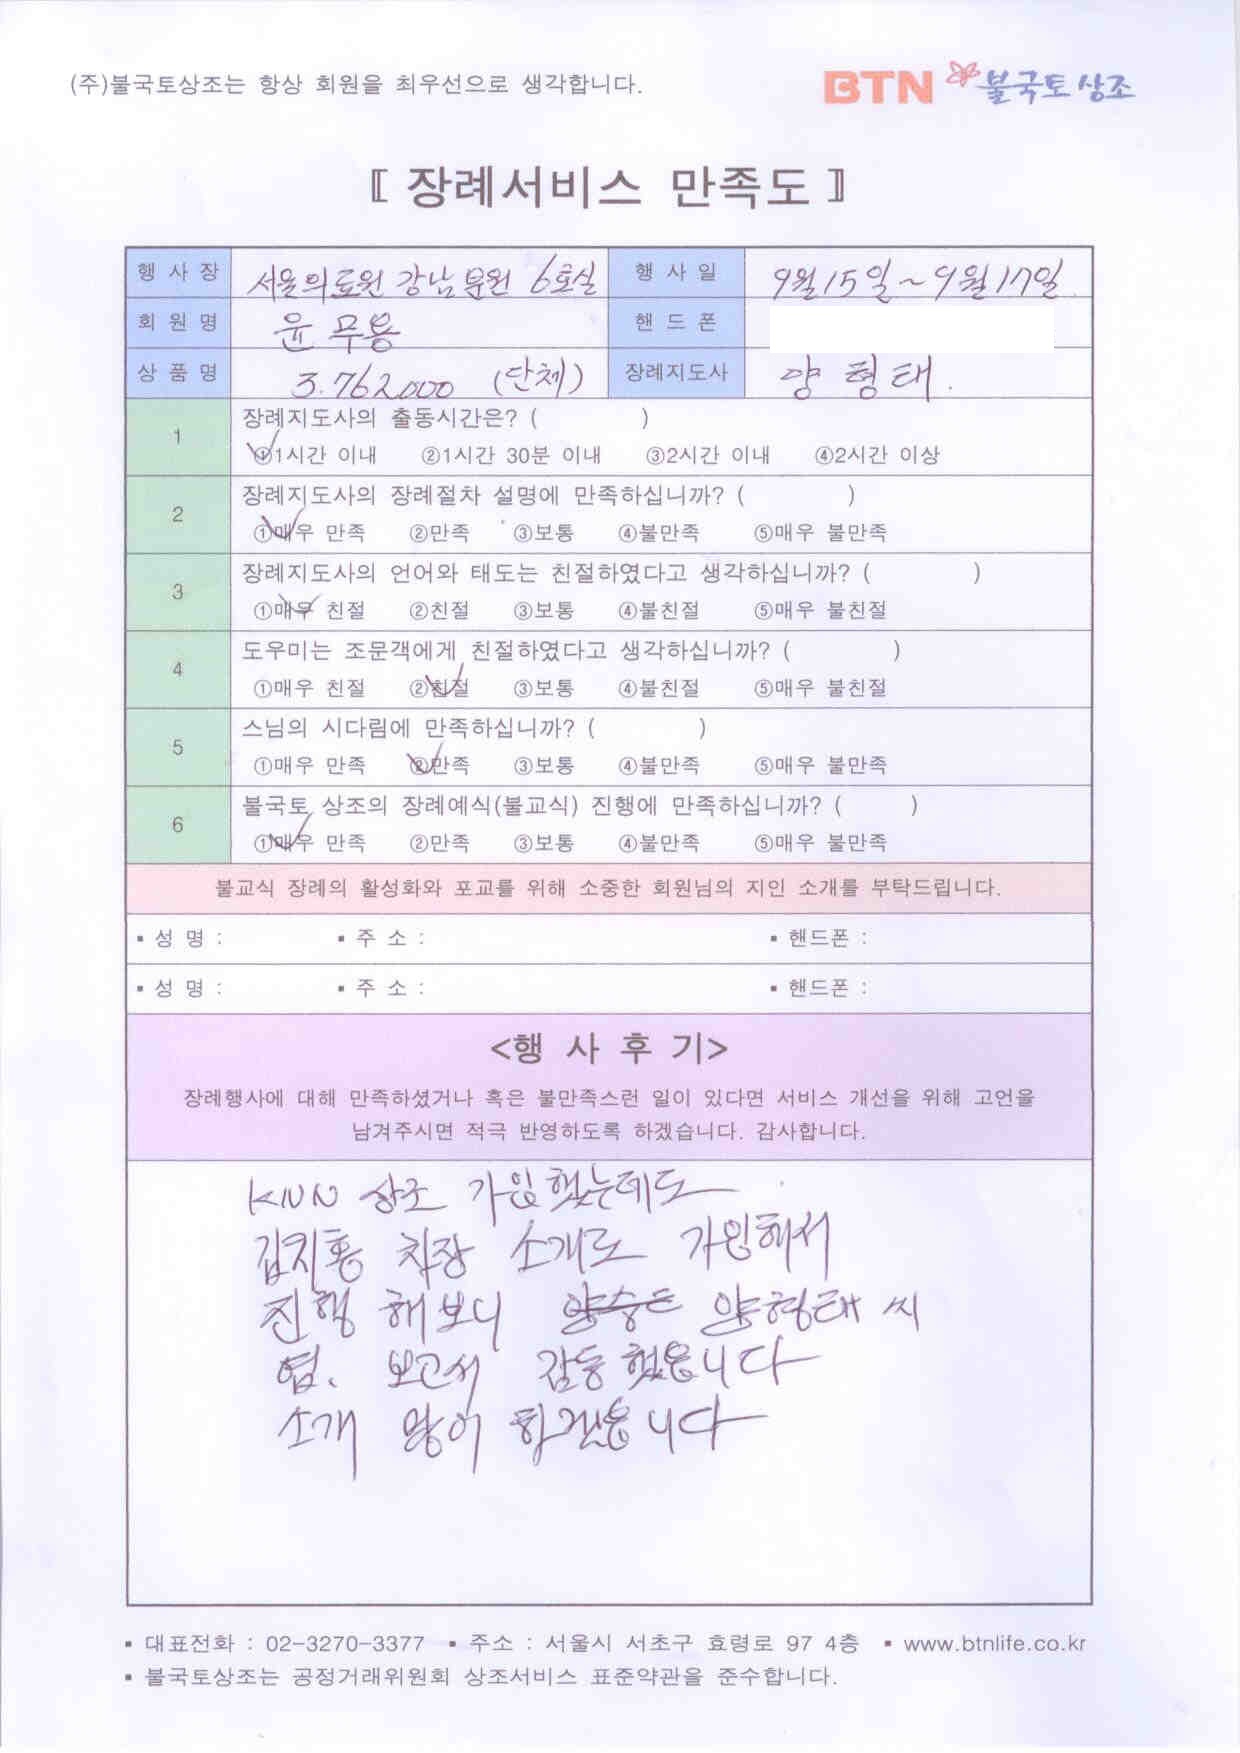 (주)불국토상조는 항상 회원을 최우선으로 생각합니다.
BTN 불국토상조
〚 장례서비스 만족도 〛
행 사 장 서울의료원 강남분원 6호실 행 사 일 9월15일~9월17일
회 원 명 윤무용 핸 드 폰
상 품 명 3.762.000 (단체) 장례지도사 양 형 태.
1 장례지도사의 출동시간은? ( )
①1시간 이내 ②1시간 30분 이내 ③2시간 이내 ④2시간 이상
2 장례지도사의 장례절차 설명에 만족하십니까? ( )
①매우 만족 ②만족 ③보통 ④불만족 ⑤매우 불만족
3 장례지도사의 언어와 태도는 친절하였다고 생각하십니까? ( )
①매우 친절 ②친절 ③보통 ④불친절 ⑤매우 불친절
4 도우미는 조문객에게 친절하였다고 생각하십니까? ( )
①매우 친절 ②친절 ③보통 ④불친절 ⑤매우 불친절
5 스님의 시다림에 만족하십니까? ( )
①매우 만족 ②만족 ③보통 ④불만족 ⑤매우 불만족
6 불국토 상조의 장례예식(불교식) 진행에 만족하십니까? ( )
①매우 만족 ②만족 ③보통 ④불만족 ⑤매우 불만족
불교식 장례의 활성화와 포교를 위해 소중한 회원님의 지인 소개를 부탁드립니다.
▪ 성 명 : ▪ 주 소 : ▪ 핸드폰 :
▪ 성 명 : ▪ 주 소 : ▪ 핸드폰 :
<행 사 후 기>
장례행사에 대해 만족하셨거나 혹은 불만족스런 일이 있다면 서비스 개선을 위해 고언을
남겨주시면 적극 반영하도록 하겠습니다. 감사합니다.
KNN 상조 가입했는데도
김지홍 차장 소개로 가입해서
진행 해보니 양형태 씨
염. 보고서 감동했읍니다
소개 많이 하겠읍니다
▪ 대표전화 : 02-3270-3377 ▪ 주소 : 서울시 서초구 효령로 97 4층 ▪ www.btnlife.co.kr
▪ 불국토상조는 공정거래위원회 상조서비스 표준약관을 준수합니다.